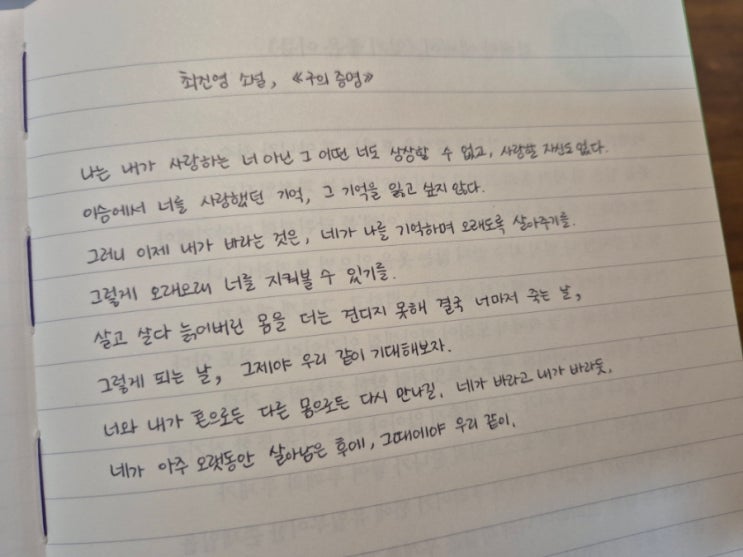 최진영 소설, 《구의 증명》
나는 내가 사랑하는 너 아닌 그 어떤 너도 상상할 수 없고, 사랑할 자신도 없다.
이승에서 너를 사랑했던 기억, 그 기억을 잃고 싶지 않다.
그러니 이제 내가 바라는 것은, 네가 나를 기억하며 오래도록 살아주기를.
그렇게 오래오래 너를 지켜볼 수 있기를.
살고 살다 늙어버린 몸을 더는 견디지 못해 결국 너마저 죽는 날,
그렇게 되는 날, 그제야 우리 같이 기대해보자.
너와 내가 혼으로든 다른 몸으로든 다시 만나길. 네가 바라고 내가 바라듯.
네가 아주 오랫동안 살아남은 후에, 그때에야 우리 같이.